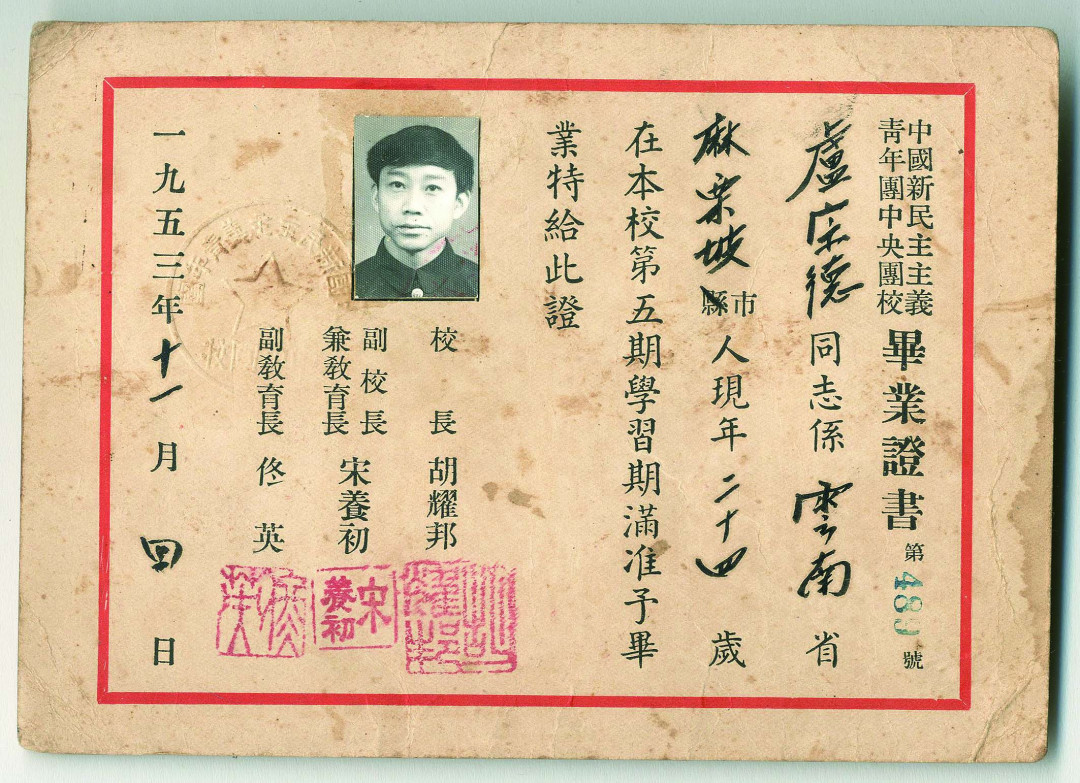 中國新民主主義
靑年團中央團校
畢業證書
第489號
盧宗德同志係雲南省
麻栗坡市縣人現年二十四歲
在本校第五期學習期滿准予畢
業特給此證
校長 胡耀邦
副校長
兼敎育長 宋養初
副敎育長 佟英
宋養初
一九五三年十一月四日